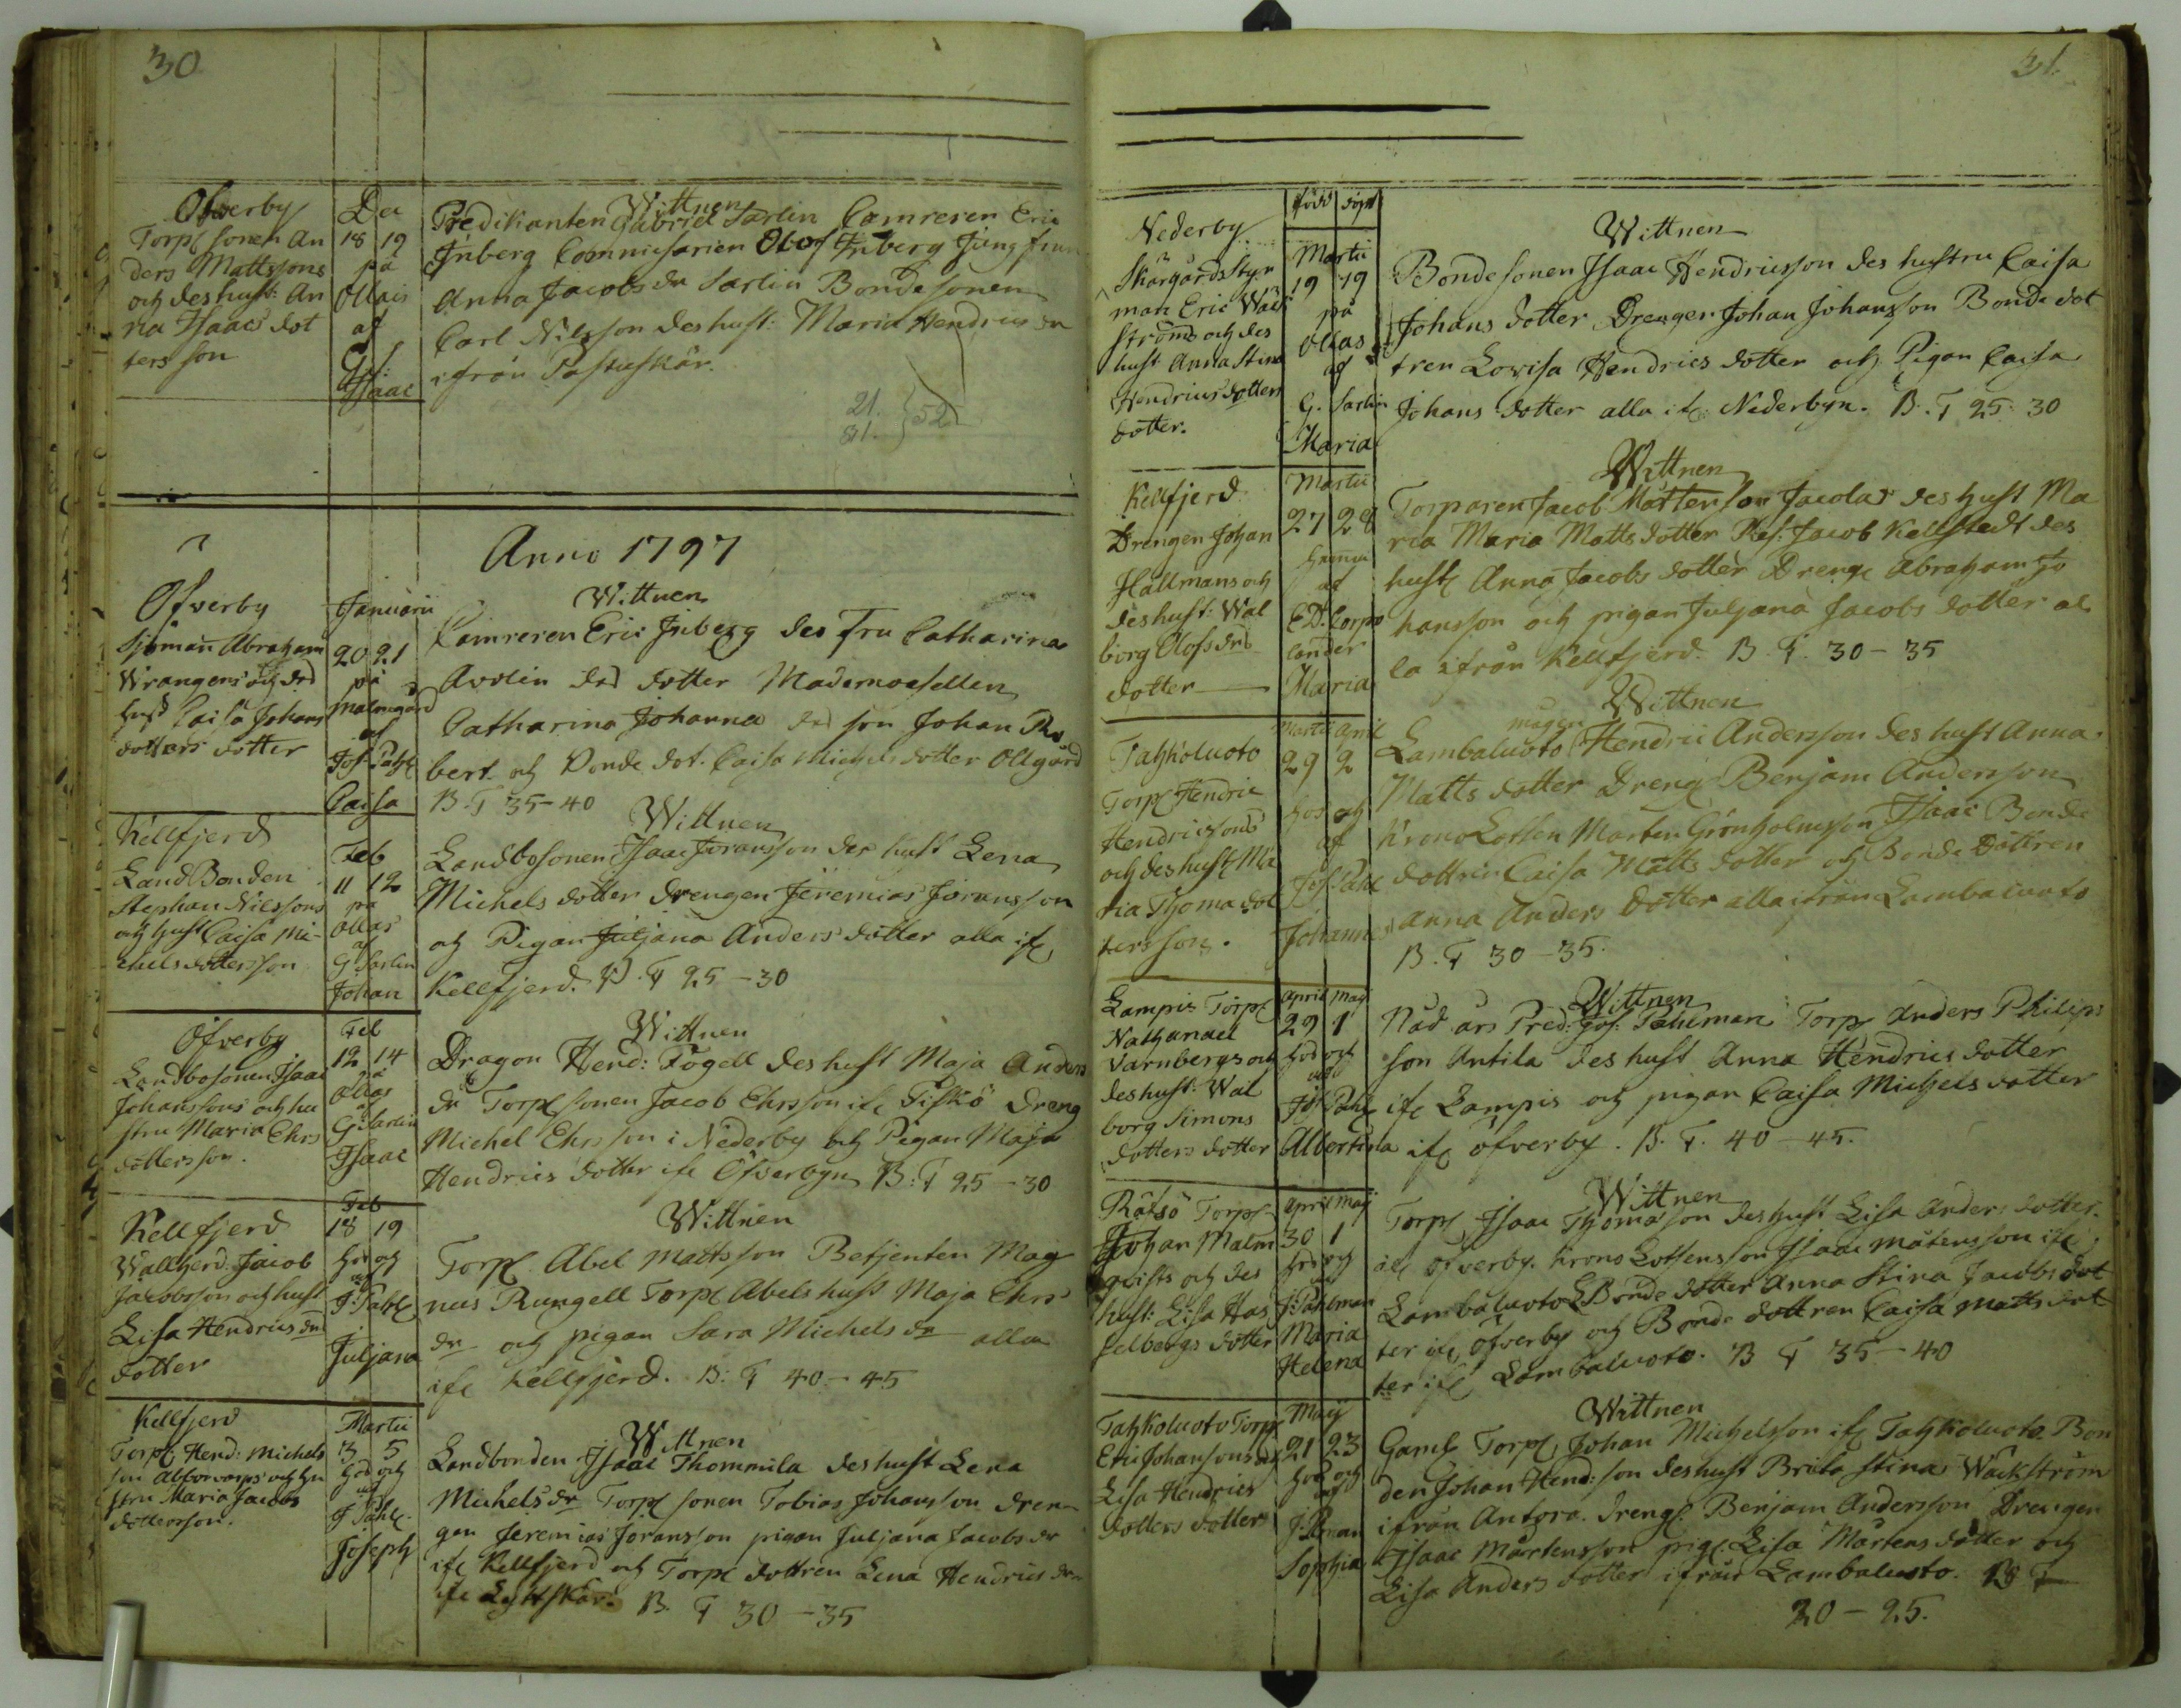 30
Öfverby
Torp. sonen An
ders Mattssons
och des hust: An
na Isaacs dot
ters son
Dec
18 19
på
Ollais
af
G S.
Isaac
Wittnen
Predikanten Gabriel Sarlin Camreren Eric
Inberg Commiss​arien Olof Inberg Jungfrun
Anna Jacobs dr Sarlin Bondesonen
Carl Nilsson des hust: Maria Hendrics dr
ifrån Pastuskär.
21.
31. } 52
Anno 1797
Öfverby
Sjöman Abraham
Wrangers och des
hust Caisa Johans
dotters dotter
Januarii
20 21
på
Malmgård
af
Jos. Pahl
Caisa
Wittnen
Camreren Eric Inberg des Fru Catharina
Avolin des dotter Mademoisellen
Catharina Johanna des son Johan Ro
bert och Bonde dot. Caisa Michels dotter Ollgård
B. T 35-40
Kellfjerd
Land Bonden
Stephan Nilssons
och hust Caisa Mi-
chels dotters son
Feb
11 12
på
Ollas
af
G Sarlin
Johan
Wittnen
Landbosonen Isaac Joransson des hust Lena
Michels dotter Drengen Jeremias Joransson
och Pigan Juljana Anders dotter alla if.
Kellfjerd. B. T 25-30
Öfverby
Landbosonen Isaac
Johanssons och hu
stru Maria Ehrs
dotters son.
Feb
12 14
på
Ollas
af
G: Sarlin
Isaac
Wittnen
Dragon Hend: Fogell des hust Maja Anders
dr Torp sonen Jacob Ehrsson if. Fiskö Dreng
Michel Ehrsson i Nederby och Pigan Maja
Hendrics dotter if. Öfverbyn B: T 25-30
Kellfjerd
Wallherd. Jacob
Jacobsson och hust
Lisa Hendrics dr
dotter
Feb
18 19
Hos och
af
J: Pahl
Juljana
Wittnen
Torp. Abel Mattsson Betjenten Mag
nus Rungell Torp. Abels hust Maja Ehrs
dr och pigan Sara Michels dr alla
if. Kellfjerd. B: T 40-45
Kellfjerd
Torp. Hend: Michels
son och hu
stru Maria Jacobs
dotters son.
Martii
3 5
hos och
af
J Pahl.
Joseph
Wittnen
Landbonden Isaac Thommila des hust Lena
Michels dr Torp sonen Tobias Johansson dren
gen Jeremias Joransson pigan Juljana Jacobs dr
if. Kellfjerd och Torp dottren Lena Hendrics dr
if. Lyttskär. B. T 30-35
31.
Nederby
Skärgårds Styr
man Eric Wack
ströms och des
hust Anna Stina
Hendrics dotters
dotter.
född döpt
Martii
19 19
på
Ollas
af
G. Sarlin
Maria
Wittnen
Bondesonen Isaac Hendricsson des hustru Caisa
Johans dotter Drengen Johan Johansson Bonde dot
tren Lovisa Hendrics dotter och Pigan Caisa
Johans dotter alla if. Nederbyn. B. T 25. 30
Kellfjerd
Drengen Johan
Hallmans och
des hust: Wal
borg Olofs drs
dotter
Martii
27 28
hemma
af
E. D. Corpo
lander
Maria
Wittnen
Torparen Jacob Mårtensson Jacolas des hust Ma
ria Maria Matts dotter Res: Jacob Kellstedt des
hust Anna Jacobs dotter Dreng. Abraham Jo
hansson och pigan Juljana Jacobs dotter al
la ifrån Kellfjerd. B. T. 30-35
Tahkoluoto
Torp Hendric
Hendricssons
och des hust Ma
ria Thoma dot
ters son.
Martii April
29 2
hos och
af
Jos. Pahl
Johannes
Wittnen
Lambaluoto mågen Hendric Andersson des hust Anna
Matts dotter Dreng Benjam Andersson
Krono Lotsen Mårten Grönholms son Isaac Bonde
dottren Caisa Matts dotter och Bonde Dottren
Anna Anders Dotter alla ifrån Lambaluoto
B. T 30-35.
Lampis Torp
Nathanael
Varnbergs och
des hust: Wal
borg Simons
dotters dotter
April Maj
29 1
hos och
af
Jos Pahl
Albertina
Wittnen
Nåd års Pred: Jos: Pahlman Torp Anders Philips
son Antila des hust Anna Hendrics dotter
if. Lampis och pigan Caisa Michels dotter
if. Öfverby. B. T. 40-45.
Räfsö Torp
Johan Malm
qvists och des
hust: Lisa Has
selbergs dotter
April Maj
30 1
hos och
af
J: Pahlman
Maria
Helena
Wittnen
Torp. Isaac Thomasson des hust Lisa Anders dotter
if. Öfverby. Krono Lotsens son Isaac Mårtensson if.
Lambaluoto Bonde dotter Anna Stina Jacobs dot
ter if. Öfverby och Bonde dottren Caisa Matts dot
ter if. Lambaluoto. B T 35-40
Tahkoluoto Torp
Eric Johanssons och
Lisa Hendrics
dotters dotter
Maij
21 23
hos och
af
J: Pman
Sophia
Wittnen
Gaml Torp. Johan Michelsson if. Tahkoluoto Bon
den Johan Hend:son des hust Brita Stina Wackström
ifrån Antora. dreng. Benjam Andersson Drengen
Isaac Mårtensson pig. Lisa Mårtens dotter och
Lisa Anders dotter ifrån Lambaluoto. B T
20-25.